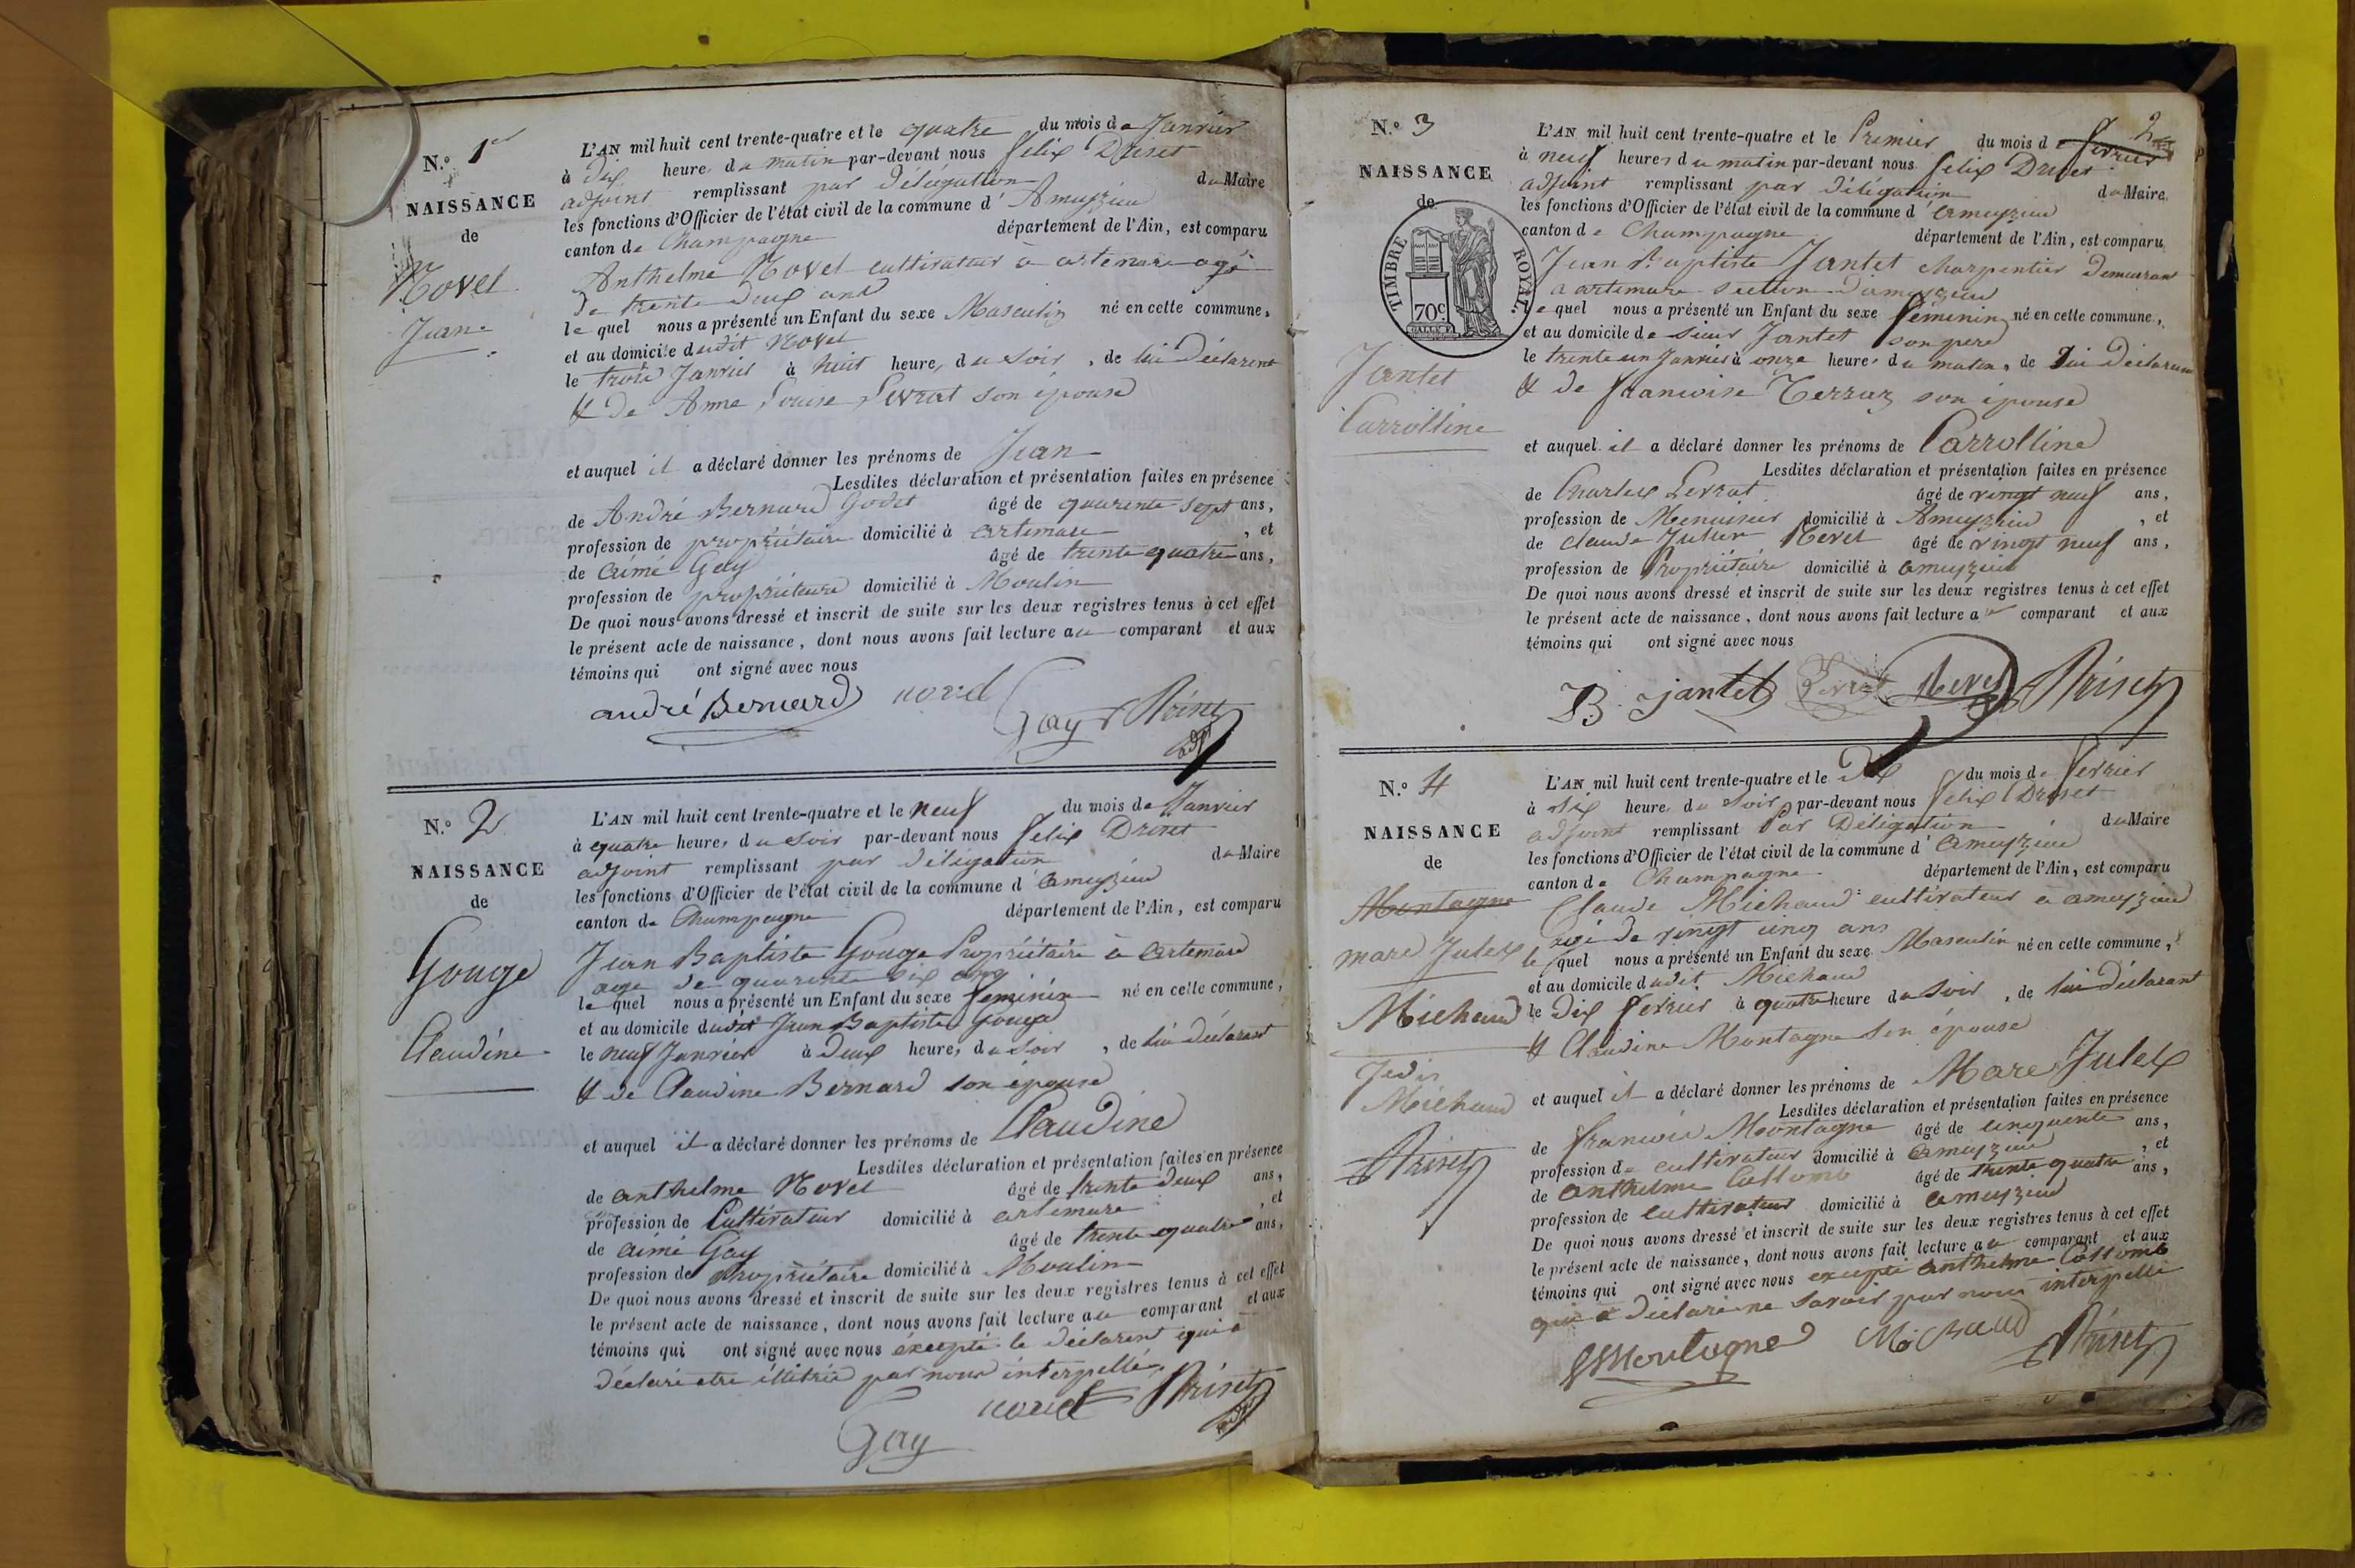 N.º 1er
NAISSANCE
de
Novel
Jean
L'AN mil huit cent trente-quatre et le quatre du mois de Janvier
à dix heure du matin par-devant nous felix Driset
adjoint remplissant par délégation du Maire
les fonctions d'Officier de l'état civil de la commune d' Ameyzieu
canton de Champagne département de l'Ain, est comparu
Anthelme Novel cultivateur à artemare agé
de trente deux ans
le quel nous a présenté un Enfant du sexe Masculin né en cette commune,
et au domicile dudit Novel
le trois Janvier à huit heure, du soir, de lui déclarent
& de Anne Louise Serrat son épouse
et auquel il a déclaré donner les prénoms de Jean
Lesdites déclaration et présentation faites en présence
de André Bernard Godet âgé de quarente sept ans,
profession de propriétaire domicilié à artemare, et
de aimé Gay âgé de trente quatre ans,
profession de propriétaire domicilié à Moulin
De quoi nous avons dressé et inscrit de suite sur les deux registres tenus à cet effet
le présent acte de naissance, dont nous avons fait lecture au comparant et aux
témoins qui ont signé avec nous
andré Bernard novel Gay Driset
adj
N.º 2
NAISSANCE
de
Gouge
Claudine
L'AN mil huit cent trente-quatre et le neuf du mois de Janvier
à quatre heures du soir par-devant nous felix Driset
adjoint remplissant par délégation du Maire
les fonctions d'Officier de l'état civil de la commune d' ameyzieu
canton de Champagne département de l'Ain, est comparu
Jean Baptiste Gouge Propriétaire à artemare
age de quarente six ans
le quel nous a présenté un Enfant du sexe feminin né en cette commune,
et au domicile dudit Jean Baptiste Gouge
le neuf Janvier à deux heures du soir, de lui déclarant
& de Claudine Bernard son épouse
et auquel il a déclaré donner les prénoms de Claudine
Lesdites déclaration et présentation faites en présence
de anthelme Novel âgé de trente deux ans,
profession de Cultivateur domicilié à artemare, et
de aimé Gay âgé de trente quatre ans,
profession de propriétaire domicilié à Moulin
De quoi nous avons dressé et inscrit de suite sur les deux registres tenus à cet effet
le présent acte de naissance, dont nous avons fait lecture au comparant et aux
témoins qui ont signé avec nous excepté le déclarent qui a
déclaré etre illitrée par nous interpellé
Gay novel Driset
adj
2
N.º 3
NAISSANCE
de
TIMBRE ROYAL
70c
Jantet
Carrolline
L'AN mil huit cent trente-quatre et le Premier du mois de fevrier
à neuf heures du matin par-devant nous felix Driset
adjoint remplissant par délégation du Maire
les fonctions d'Officier de l'état civil de la commune d' ameyzieu
canton de Champagne département de l'Ain, est comparu
Jean Baptiste Jantet charpentier demeuran
a artemare section dameyzieu
le quel nous a présenté un Enfant du sexe féminin né en cette commune,
et au domicile de sieur Jantet son pere
le trente un Janvier à onze heures du matin, de lui déclarant
& de francoise Terraz son épouse
et auquel il a déclaré donner les prénoms de Carrolline
Lesdites déclaration et présentation faites en présence
de Charles Serrat âgé de vingt neuf ans,
profession de Menuisier domicilié à Ameyzieu, et
de claude Julien Revel âgé de vingt neuf ans,
profession de Propriétaire domicilié à ameyzieu
De quoi nous avons dressé et inscrit de suite sur les deux registres tenus à cet effet
le présent acte de naissance, dont nous avons fait lecture au comparant et aux
témoins qui ont signé avec nous
B. jantet Serrat Revel Driset
N.º 4
NAISSANCE
de
Montagne
marc Jules
Michaud
Je dis
Michaud
Driset
L'AN mil huit cent trente-quatre et le Dix du mois de fevrier
à six heure, du soir par-devant nous felix Driset
adjoint remplissant Par Déligation du Maire
les fonctions d'Officier de l'état civil de la commune d' ameyzieu
canton de Champagne département de l'Ain, est comparu
Claude Michaud cultivateur à ameyzieu
agé de vingt cinq ans
le quel nous a présenté un Enfant du sexe Masculin né en cette commune,
et au domicile dudit Michaud
le dix fevrier à quatre heure du soir, de lui déclarant
& Claudine Montagne son épouse
et auquel il a déclaré donner les prénoms de Marc Jules
Lesdites déclaration et présentation faites en présence
de francois Montagne âgé de cinquente ans,
profession de cultivateur domicilié à ameyzieu, et
de anthelme Collomb âgé de trente quatre ans,
profession de cultivateur domicilié à ameyzieu
De quoi nous avons dressé et inscrit de suite sur les deux registres tenus à cet effet
le présent acte de naissance, dont nous avons fait lecture au comparant et aux
témoins qui ont signé avec nous excepté anthelme Collomb
qui a déclaré ne savoir par nous interpellé
Montagne Michaud Driset